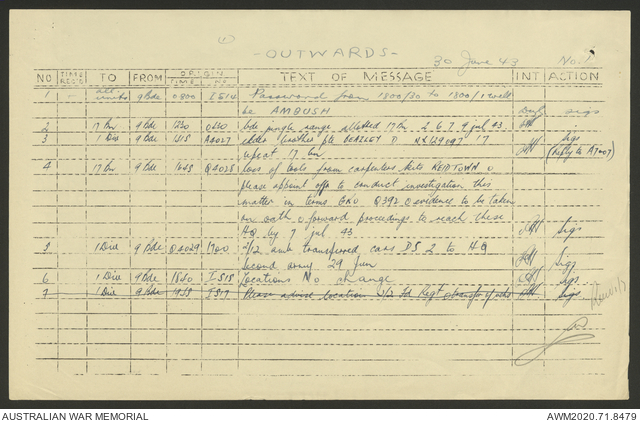 (1)
- OUTWARDS -
30 June 43 No. 1
NO TIME REC'D TO FROM ORIGIN TIME NO. TEXT OF MESSAGE INT ACTION
1 - all units 9 Bde 0800 Password from 1800/30 to 1800/1 will
be AMBUSH sigs
2 17 Bn 9 Bde 1230 bde jungle range allotted 17 Bn 2 6 7 9 jul 43
3 1 Div 9 Bde A4027 pte BEAZLEY D NX129097 17 sigs
17 bn (reply to A7007)
4 17 Bn 9 Bde 1645 loss of tools from carpenters kits REIDTOWN o
please appoint offr to conduct investigation this
matter in terms GRO Q392 o evidence to be taken
on oath o forward proceedings to reach these
HQ by 7 jul 43 Sigs
5 1 Div 9 Bde Q4029 1700 2/2 amb transferred cas DS 2 to HQ
second army 29 jun Sigs
6 1 Div 9 Bde 1840 IS18 Locations No change Sigs
7 1 Div 9 Bde IS17 Please advise location Fd Regt Sigs
AUSTRALIAN WAR MEMORIAL
AWM2020.71.8479